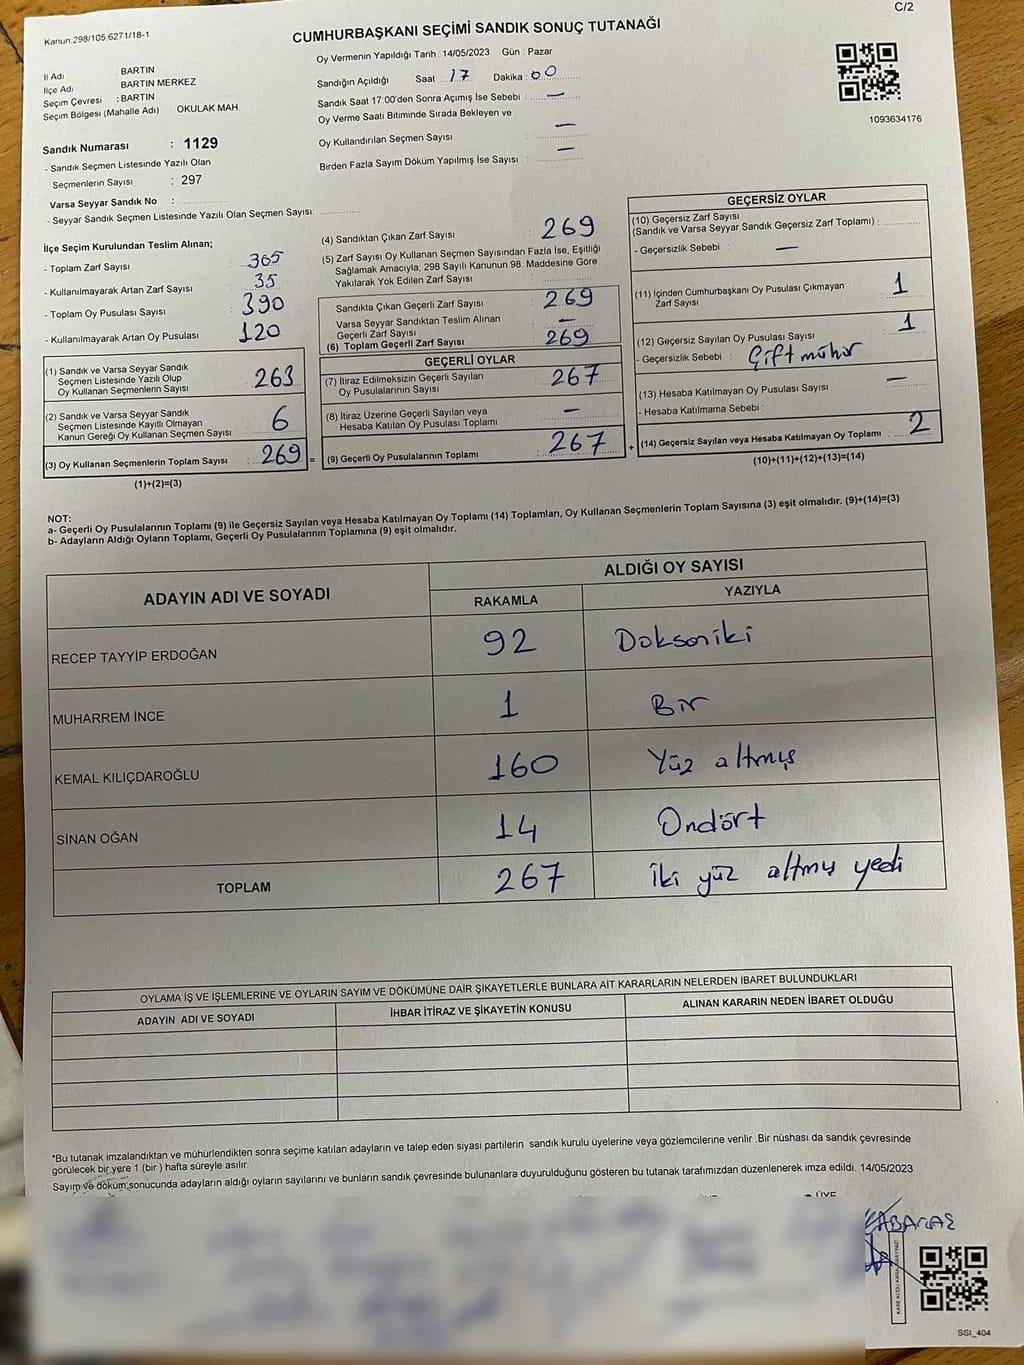 C/2
Kanun:298/105,6271/18-1
CUMHURBAŞKANI SEÇİMİ SANDIK SONUÇ TUTANAĞI
İl Adı : BARTIN
İlçe Adı BARTIN MERKEZ
Seçim Çevresi : BARTIN
Seçim Bölgesi (Mahalle Adı) OKULAK MAH.
Sandık Numarası : 1129
- Sandık Seçmen Listesinde Yazılı Olan
Seçmenlerin Sayısı : 297
Varsa Seyyar Sandık No :
- Seyyar Sandık Seçmen Listesinde Yazılı Olan Seçmen Sayısı:
Oy Vermenin Yapıldığı Tarih : 14/05/2023 Gün : Pazar
Sandığın Açıldığı Saat : 17 Dakika : 00
Sandık Saat 17:00'den Sonra Açımış İse Sebebi : —
Oy Verme Saati Bitiminde Sırada Bekleyen ve
Oy Kullandırılan Seçmen Sayısı : —
Birden Fazla Sayım Döküm Yapılmış İse Sayısı : —
1093634176
İlçe Seçim Kurulundan Teslim Alınan;
- Toplam Zarf Sayısı : 305
- Kullanılmayarak Artan Zarf Sayısı : 35
- Toplam Oy Pusulası Sayısı : 390
- Kullanılmayarak Artan Oy Pusulası : 120
(1) Sandık ve Varsa Seyyar Sandık
Seçmen Listesinde Yazılı Olup
Oy Kullanan Seçmenlerin Sayısı : 263
(2) Sandık ve Varsa Seyyar Sandık
Seçmen Listesinde Kayıtlı Olmayan
Kanun Gereği Oy Kullanan Seçmen Sayısı : 6
(3) Oy Kullanan Seçmenlerin Toplam Sayısı : 269 =
(1)+(2)=(3)
(4) Sandıktan Çıkan Zarf Sayısı : 269
(5) Zarf Sayısı Oy Kullanan Seçmen Sayısından Fazla İse, Eşitliği
Sağlamak Amacıyla, 298 Sayılı Kanunun 98. Maddesine Göre
Yakılarak Yok Edilen Zarf Sayısı :
Sandıkta Çıkan Geçerli Zarf Sayısı : 269
Varsa Seyyar Sandıktan Teslim Alınan
Geçerli Zarf Sayısı : —
(6) Toplam Geçerli Zarf Sayısı : 269
GEÇERLİ OYLAR
(7) İtiraz Edilmeksizin Geçerli Sayılan
Oy Pusulalarının Sayısı : 267
(8) İtiraz Üzerine Geçerli Sayılan veya
Hesaba Katılan Oy Pusulası Toplamı : —
(9) Geçerli Oy Pusulalarının Toplamı : 267 +
GEÇERSİZ OYLAR
(10) Geçersiz Zarf Sayısı
(Sandık ve Varsa Seyyar Sandık Geçersiz Zarf Toplamı) :
- Geçersizlik Sebebi : —
(11) İçinden Cumhurbaşkanı Oy Pusulası Çıkmayan
Zarf Sayısı : 1
(12) Geçersiz Sayılan Oy Pusulası Sayısı : 1
- Geçersizlik Sebebi : Çift mühür
(13) Hesaba Katılmayan Oy Pusulası Sayısı : —
- Hesaba Katılmama Sebebi :
(14) Geçersiz Sayılan veya Hesaba Katılmayan Oy Toplamı : 2
(10)+(11)+(12)+(13)=(14)
NOT:
a- Geçerli Oy Pusulalarının Toplamı (9) ile Geçersiz Sayılan veya Hesaba Katılmayan Oy Toplamı (14) Toplamları, Oy Kullanan Seçmenlerin Toplam Sayısına (3) eşit olmalıdır. (9)+(14)=(3)
b- Adayların Aldığı Oyların Toplamı, Geçerli Oy Pusulalarının Toplamına (9) eşit olmalıdır.
ADAYIN ADI VE SOYADI ALDIĞI OY SAYISI
RAKAMLA YAZIYLA
RECEP TAYYİP ERDOĞAN 92 Doksaniki
MUHARREM İNCE 1 Bir
KEMAL KILIÇDAROĞLU 160 Yüz altmış
SİNAN OĞAN 14 Ondört
TOPLAM 267 İki yüz altmış yedi
OYLAMA İŞ VE İŞLEMLERİNE VE OYLARIN SAYIM VE DÖKÜMÜNE DAİR ŞİKAYETLERLE BUNLARA AİT KARARLARIN NELERDEN İBARET BULUNDUKLARI
ADAYIN ADI VE SOYADI İHBAR İTİRAZ VE ŞİKAYETİN KONUSU ALINAN KARARIN NEDEN İBARET OLDUĞU
*Bu tutanak imzalandıktan ve mühürlendikten sonra seçime katılan adayların ve talep eden siyasi partilerin sandık kurulu üyelerine veya gözlemcilerine verilir .Bir nüshası da sandık çevresinde
görülecek bir yere 1 (bir ) hafta süreyle asılır.
Sayım ve döküm sonucunda adayların aldığı oyların sayılarını ve bunların sandık çevresinde bulunanlara duyurulduğunu gösteren bu tutanak tarafımızdan düzenlenerek imza edildi. 14/05/2023
ÜYE
SSİ_404